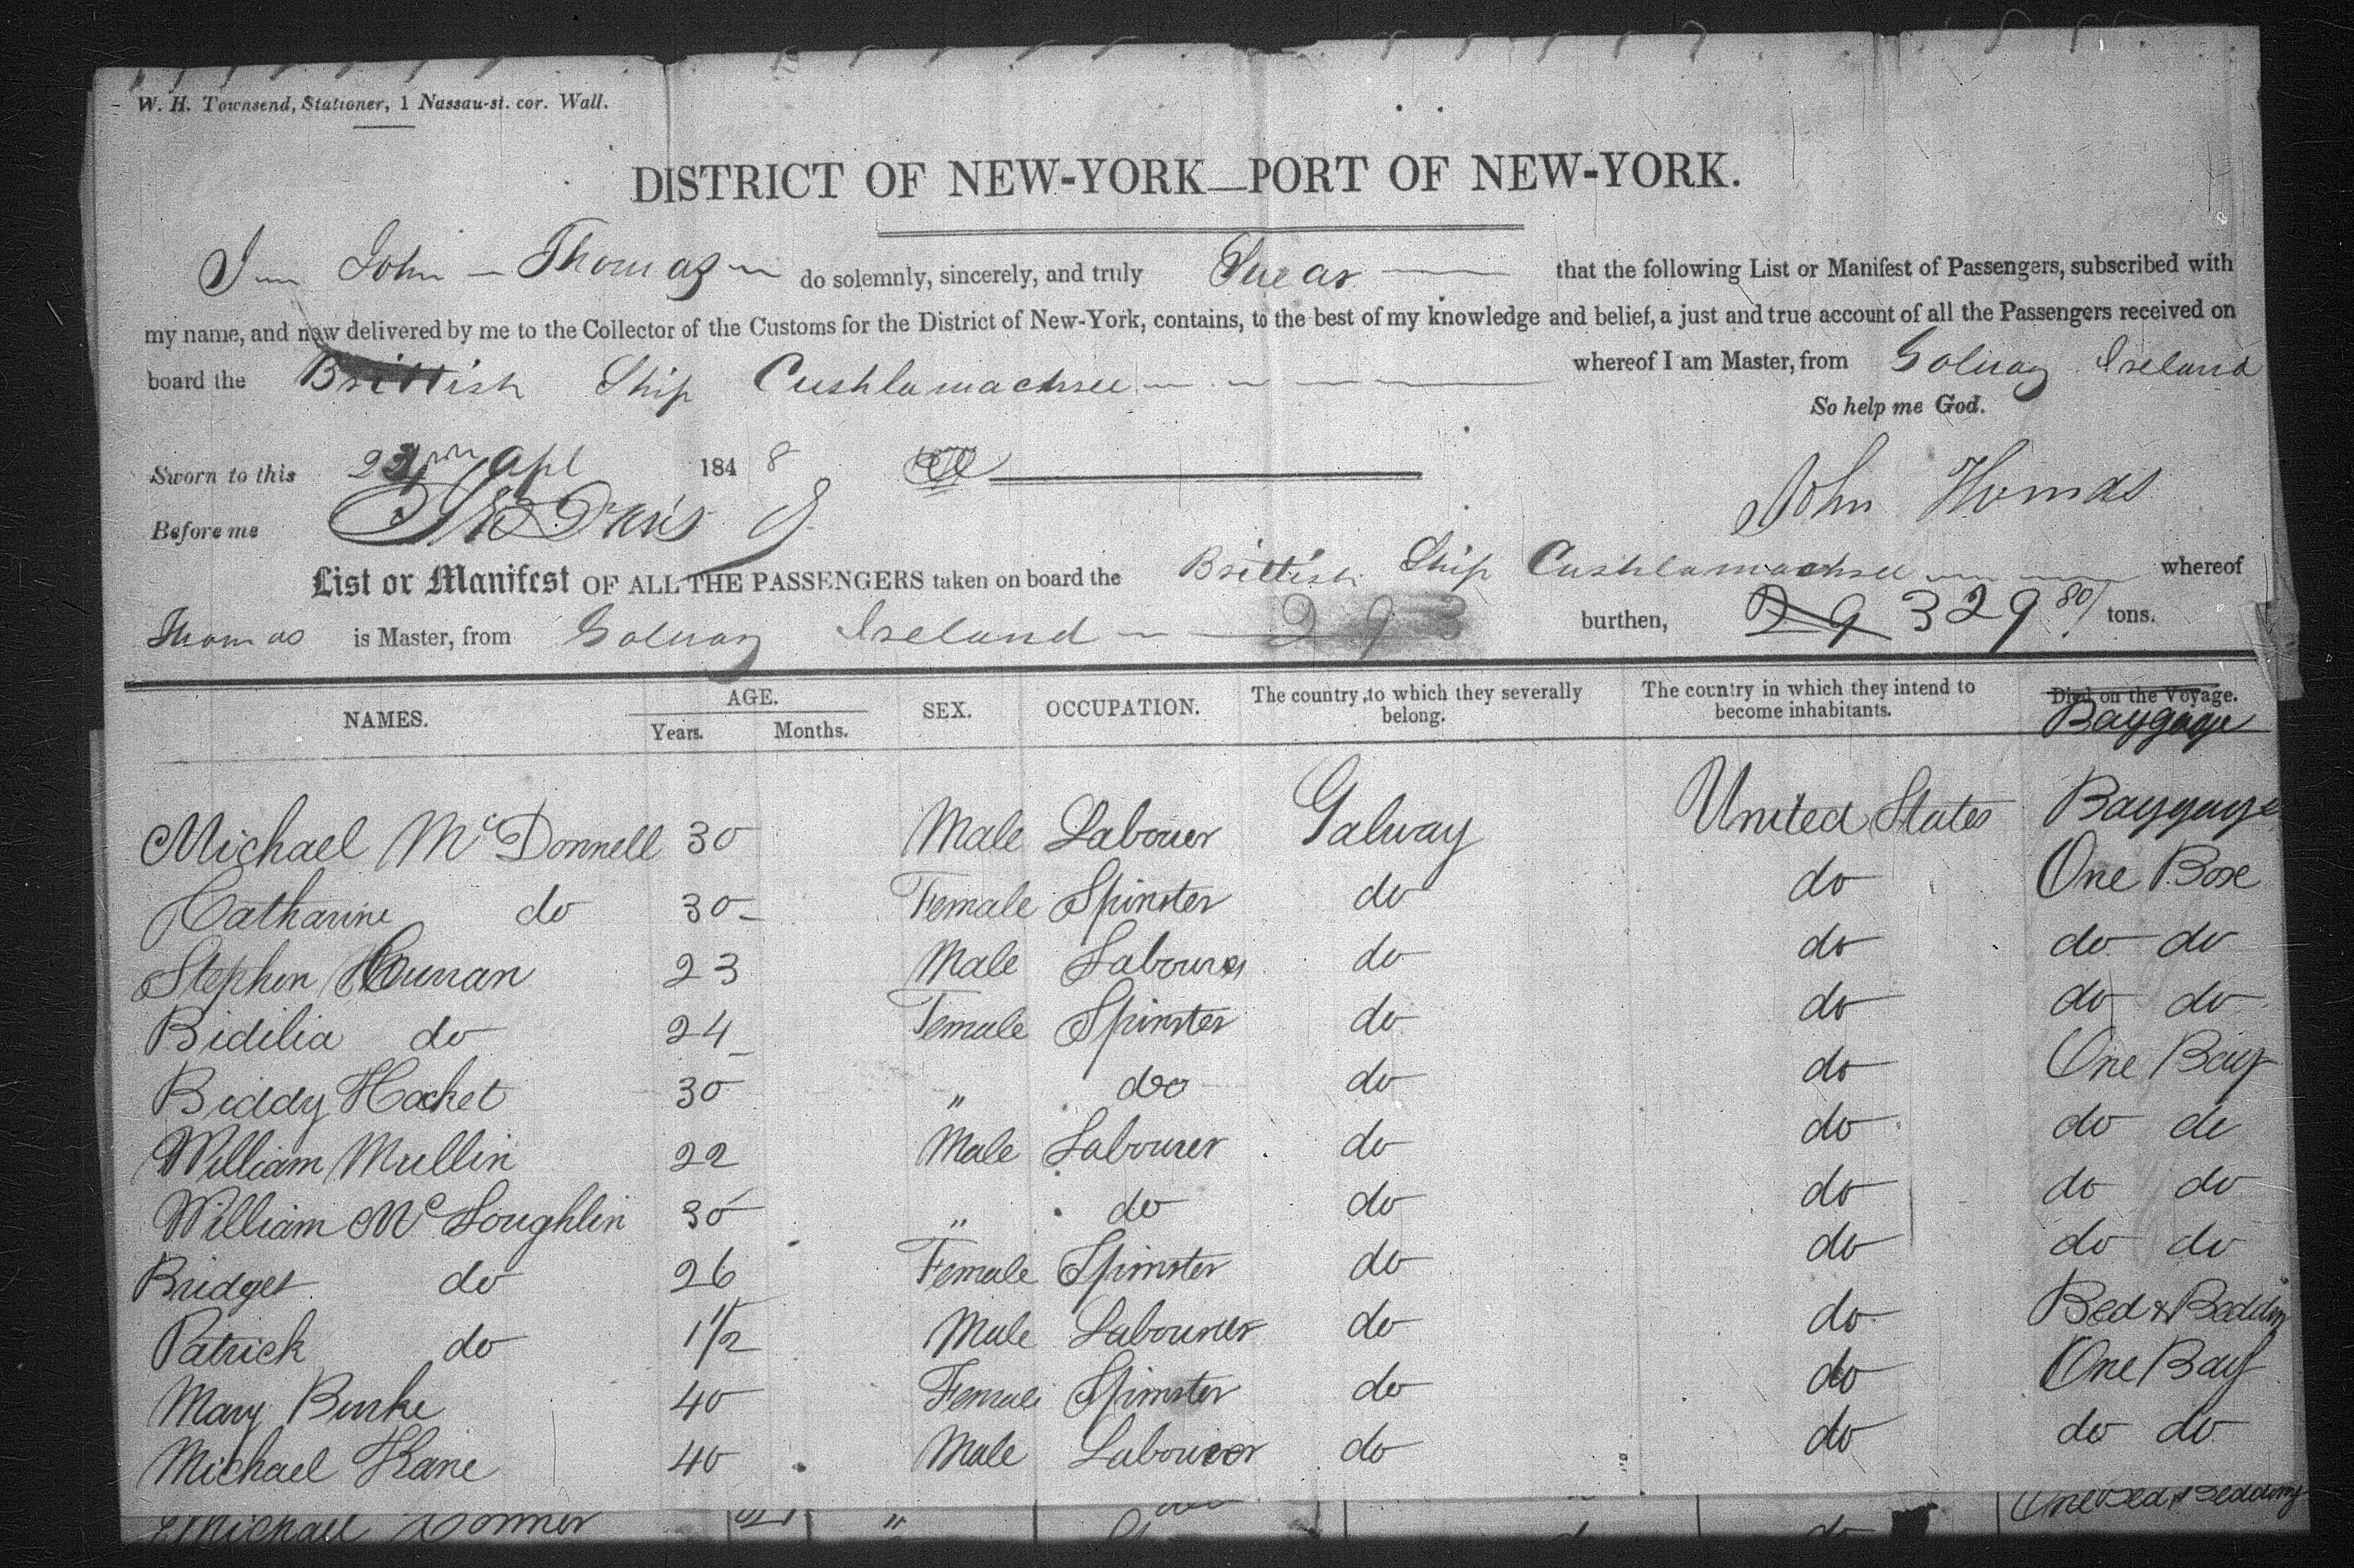 W. H. Townsend, Stationer, 1 Nassau-st. cor. Wall.
DISTRICT OF NEW-YORK—PORT OF NEW-YORK.
I John Thomas do solemnly, sincerely, and truly Swear that the following List or Manifest of Passengers, subscribed with
my name, and now delivered by me to the Collector of the Customs for the District of New-York, contains, to the best of my knowledge and belief, a just and true account of all the Passengers received on
board the Brittish Ship Cushlamachree whereof I am Master, from Galway Ireland
So help me God.
Sworn to this 24 Apl 1848
John Thomas
Before me
List or Manifest OF ALL THE PASSENGERS taken on board the Brittish Ship Cushlamachree whereof
Thomas is Master, from Galway Ireland 293 burthen, 29 329 80/ tons.
NAMES. AGE. Years. Months. SEX. OCCUPATION. The country to which they severally belong. The country in which they intend to become inhabitants. Died on the Voyage. Baggage
Michael McDonnell 30 Male Labourer Galway United States Baggage
Catharine do 30 Female Spinster do do One Box
Stephen Curran 23 Male Labourer do do do do
Bidilia do 24 Female Spinster do do do do
Biddy Hacket 30 " do do do One Bag
William Mullin 22 Male Labourer do do do do
William McLoughlin 30 " do do do do do
Bridget do 26 Female Spinster do do do do
Patrick do 1 1/2 Male Labourer do do Bed & Bedding
Mary Burke 40 Female Spinster do do One Bag
Michael Kane 40 Male Labourer do do do do
Michael Conner " do One Bed & Bedding